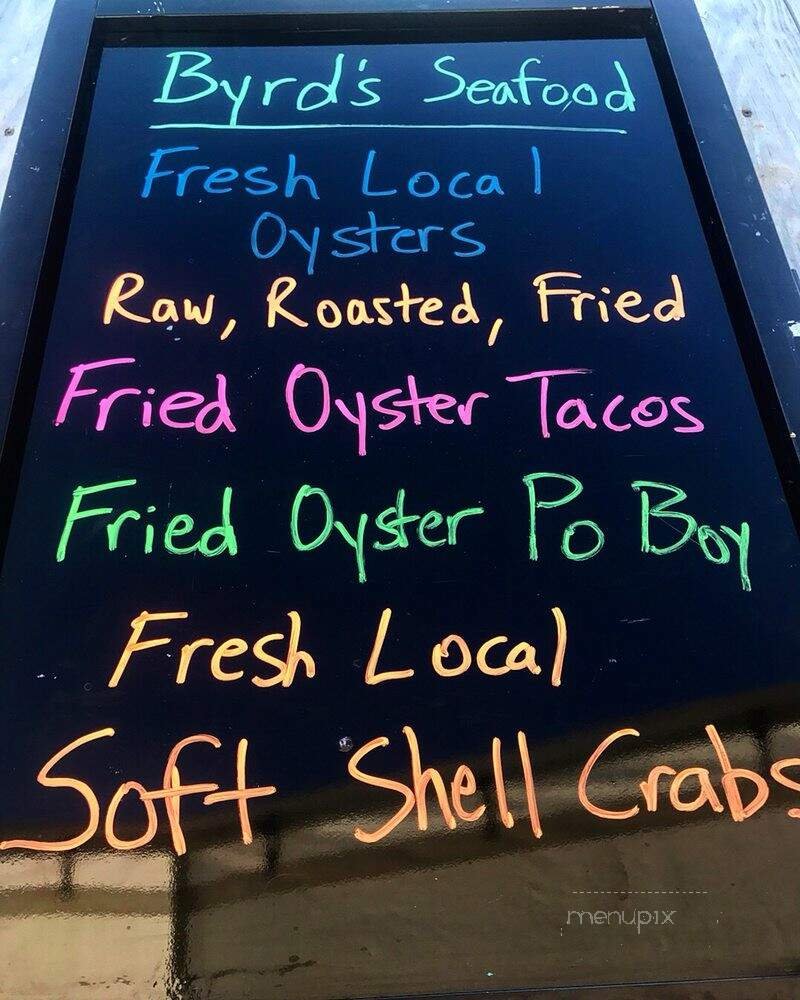 Byrd's Seafood
Fresh Local
Oysters
Raw, Roasted, Fried
Fried Oyster Tacos
Fried Oyster Po Boy
Fresh Local
Soft Shell Crabs
menupix